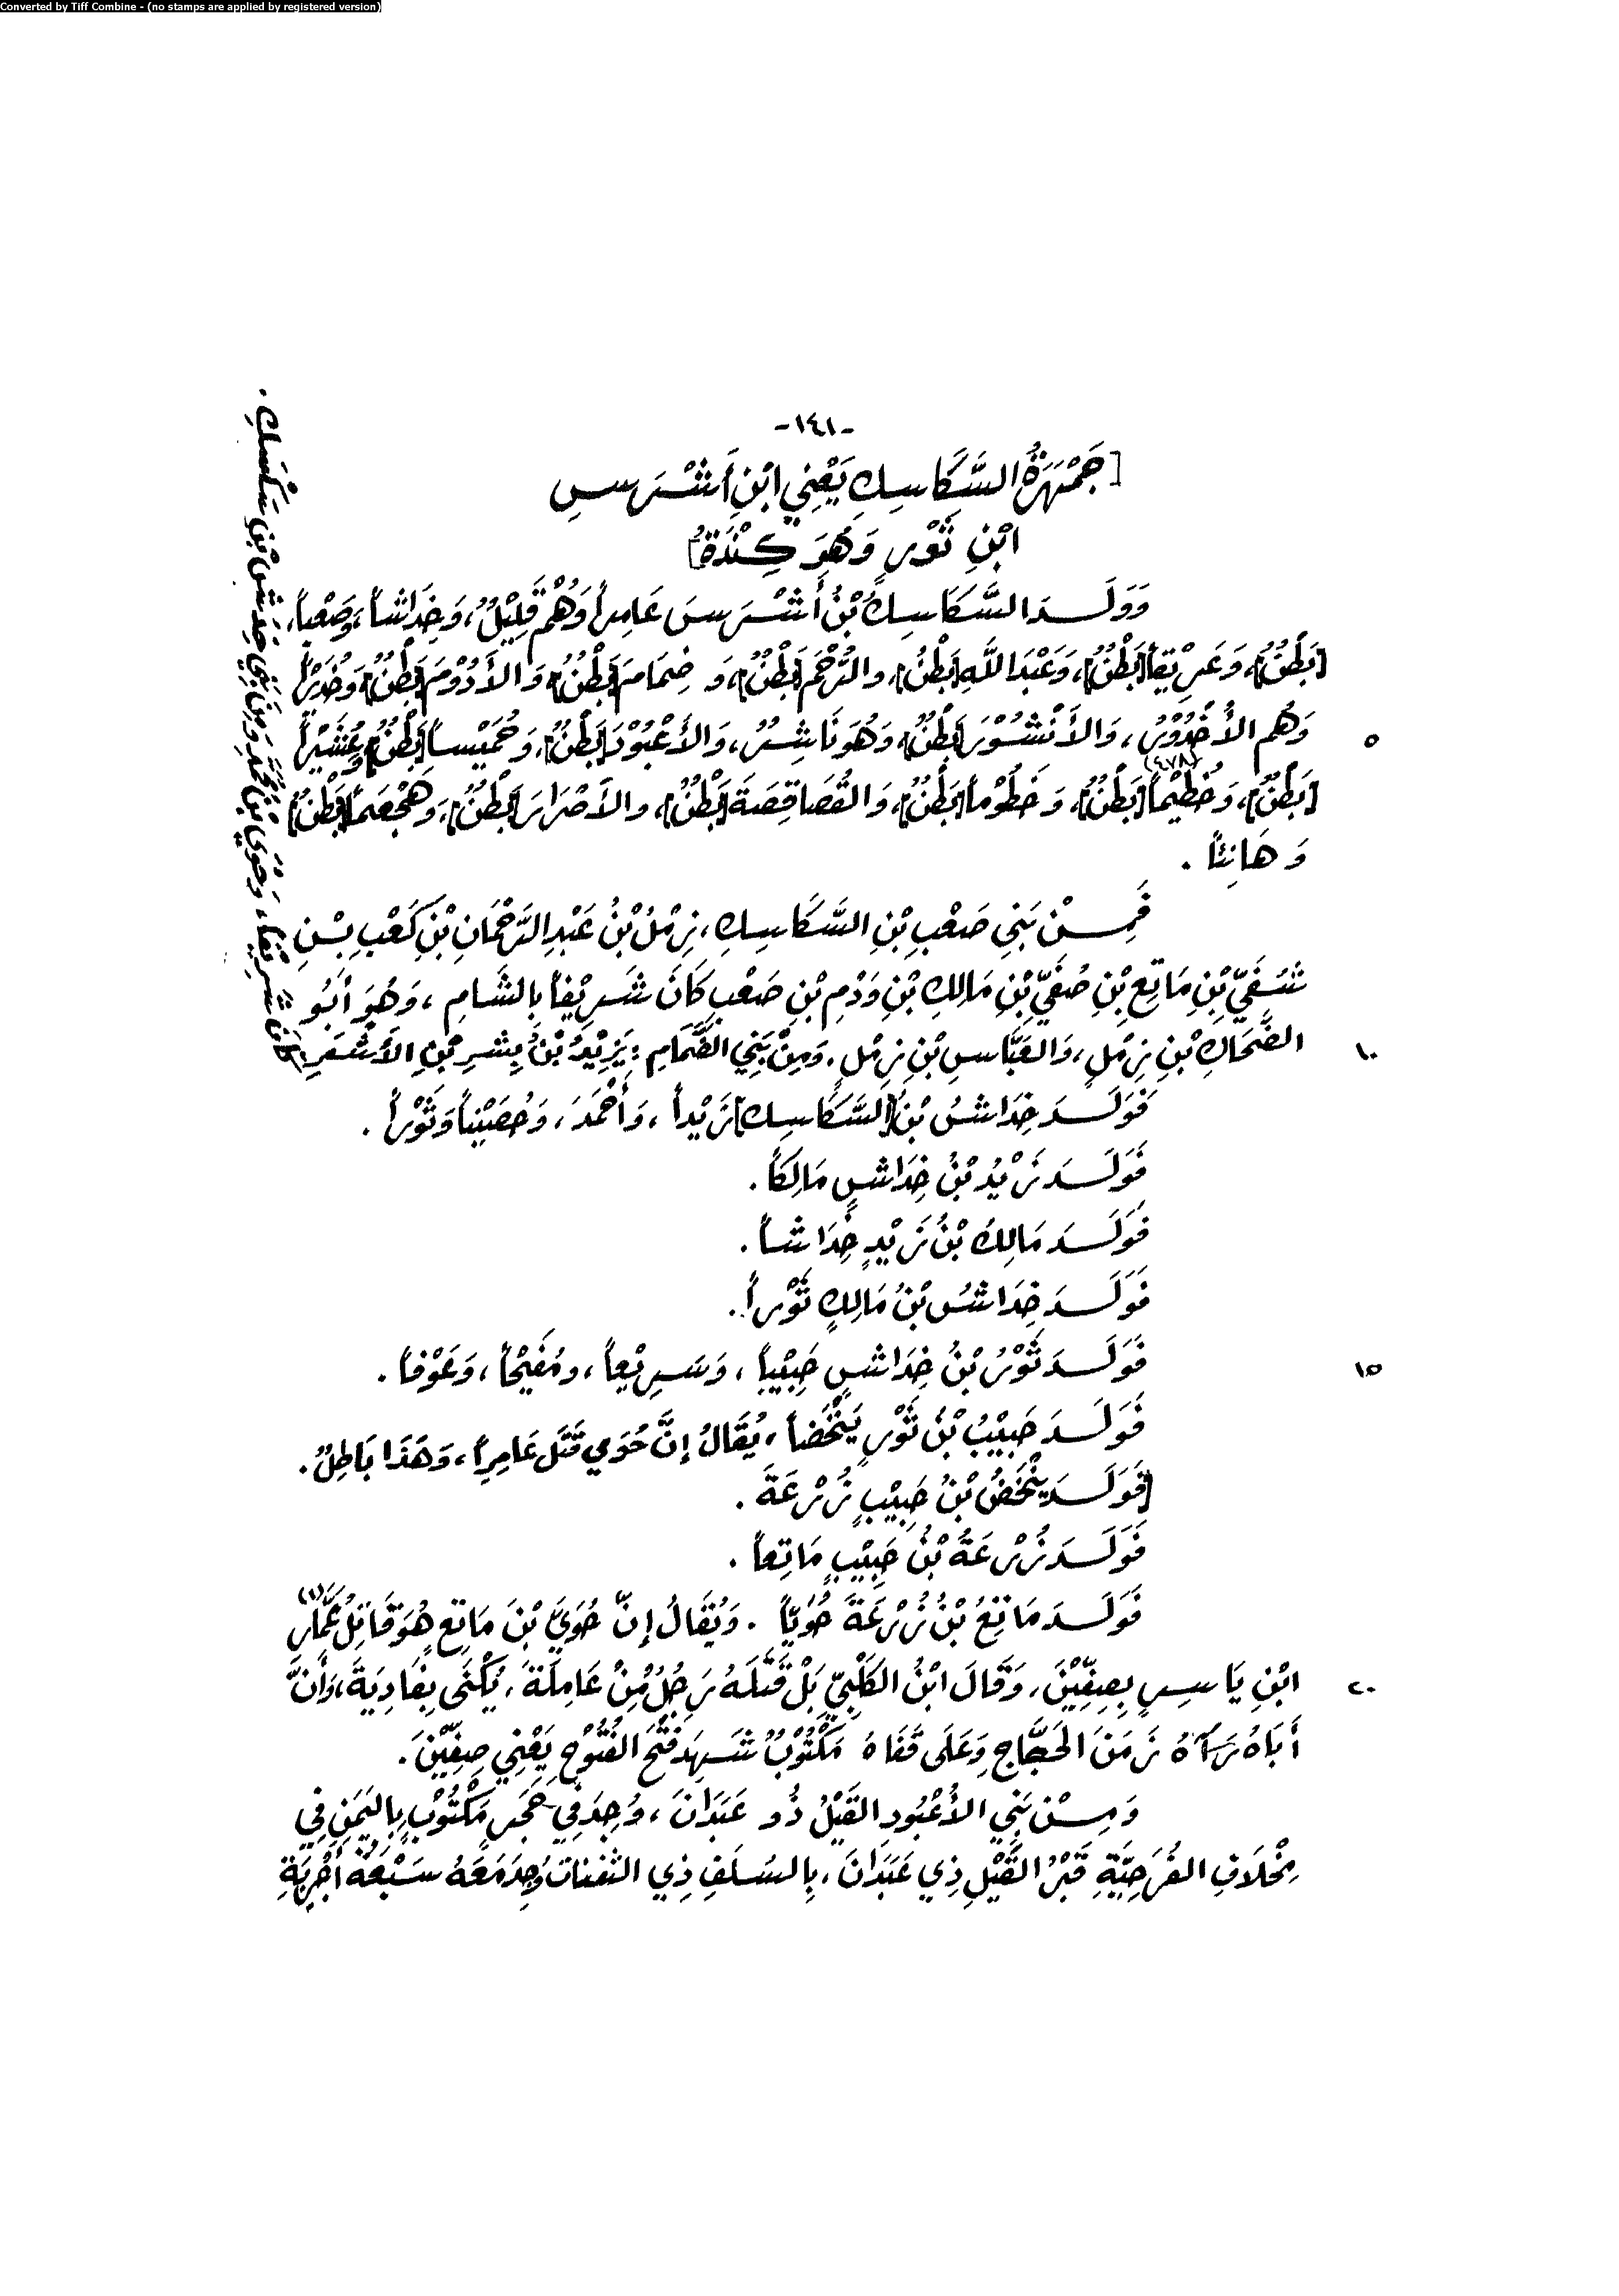 Converted by Tiff Combine - (no stamps are applied by registered version)
-١٤١-
[جَمْهَرَةُ السَّكَاسِكِ يَعْنِي ابْنِ أَشْرَسِ
ابْنِ ثَوْرٍ وَهُوَ كِنْدَةُ]
وَوَلَدَ السَّكَاسِكُ بْنُ أَشْرَسَ عَامِراً وَهُمْ قَلِيْلٌ، وَخِدَاشاً، وَصَعْباً،
[بَطْنٌ]، وَعَرِيْقاً [بَطْنٌ]، وَعَبْدَ اللَّهِ [بَطْنٌ]، والتَّرْخَمَ [بَطْنٌ]، وَ ضِمَامَ [بَطْنٌ]، وَالأَدُوْمَ [بَطْنٌ] وَخُدَيْراً
٥ وَهُم الأُخْدُوْرُ، وَالأَنْشُوْرَ [بَطْنٌ]، وَهُوَ نَاشِرٌ، وَالأَعْبُوْدَ [بَطْنٌ]، وَحُمَيْساً [بَطْنٌ] وَعُشَيْراً
(٤٧٨)
[بَطْنٌ]، وَخُطَيْماً [بَطْنٌ]، وَ خَطُوْماً [بَطْنٌ]، وَالقُصَاقِصَةَ [بَطْنٌ]، والأَضْرَارَ [بَطْنٌ]، وَهَجْعَماً [بَطْنٌ]
وَ هَانِئاً .
فَمِنْ بَنِي صَعْبِ بْنِ السَّكَاسِكِ، زِمْلُ بْنُ عَبْدِ الرَّحْمَانِ بْنِ كَعْبِ بْنِ
شُفَيِّ بْنِ مَاتِعِ بْنِ صُفَيِّ بْنِ مَالِكِ بْنِ وَدْمِ بْنِ صَعْبٍ كَانَ شَرِيْفاً بالشَّامِ، وَهُوَ أَبُو
١٠ الضَّحَاكِ بْنِ زِمْلٍ، وَالعَبَّاسِ بْنِ زِمْلٍ. وَمِنْ بَنِي الضِّمَامِ : يَزِيْدُ بْنُ بِشْرِ بْنِ الأَشْعَرِ
كَانَ شَرِيْفاً، وَحُوَيُّ بْنُ مُحَمَّدٍ وَمِنْ بَنِي خِدَاشِ بْنِ سَكْسَكِ .
فَوَلَدَ خِدَاشُ بْنُ [السَّكَاسِكِ] زَيْداً، وَأَحْمَدَ، وَحُصَيْناً وَثَوْراً .
فَوَلَدَ زَيْدُ بْنُ خِدَاشٍ مَالِكاً.
فَوَلَدَ مَالِكُ بْنُ زَيْدٍ خِدَاشاً .
فَوَلَدَ خِدَاشُ بْنُ مَالِكٍ ثَوْراً.
١٥ فَوَلَدَ ثَوْرُ بْنُ خِدَاشٍ حَبِيْباً، وَسَرِيْعاً، ومُفَيْحاً، وَعَوْفاً .
فَوَلَدَ حَبِيْبُ بْنُ ثَوْرٍ يَنْخَضاً، يُقَالُ إِنَّ حُوَي قَتَلَ عَامِراً، وَهَذَا بَاطِلٌ .
[فَوَلَدَ يَنْخَضُ بْنُ حَبِيْبٍ زُرْعَةَ .
فَوَلَدَ زُرْعَةُ بْنُ حَبِيْبٍ مَاتِعاً .
فَوَلَدَ مَاتِعُ بْنُ زُرْعَةَ حُوَيّاً . وَيُقَالُ إِنَّ حُوَيَّ بْنَ مَاتِعٍ هُوَ قَاتِلُ عَمَّارِ (١)
٢٠ ابْنِ يَاسِرٍ بِصِفِّيْنَ، وَقَالَ ابْنُ الكَلْبِيِّ بَلْ قَتَلَهُ رَجُلٌ مِنْ عَامِلَةَ، يُكْنَى بِعَادِيَةَ، وَأَنَّ
أَبَاهُ رَآهُ زَمَنَ الحَجَّاجِ وَعَلَى قَفَاهُ مَكْتُوْبٌ شَهِدَ فَتْحَ الفُتُوْحِ يَعْنِي صِفِّيْنَ .
وَمِنْ بَنِي الأُعْبُودِ القَيْلُ ذُو عَبَدَانَ، وُجِدَ فِي حَجَرٍ مَكْتُوْبٍ بِاليَمَنِ فِي
مِخْلَافِ الفُرَحِيَّةِ قَبْرُ القَيْلِ ذِي عَبَدَانَ، بِالسَلَفِ ذِي الثفنات وُجِدَ مَعَهُ سَبْعَةُ أَجْرِبَةِ